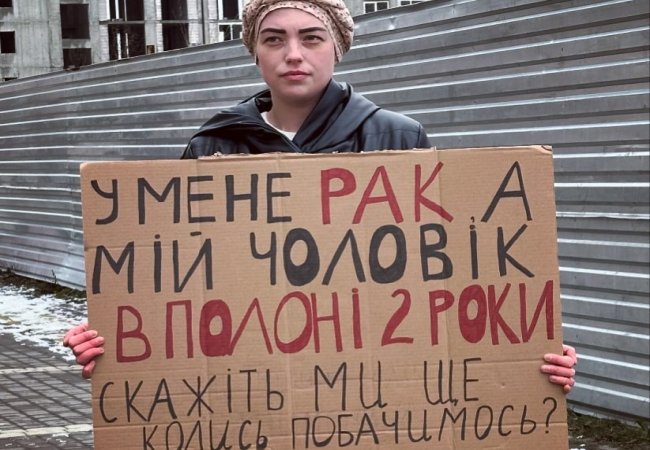 У МЕНЕ РАК, А
МІЙ ЧОЛОВІК
В ПОЛОНІ 2 РОКИ
СКАЖІТЬ МИ ЩЕ
КОЛИСЬ ПОБАЧИМОСЬ?